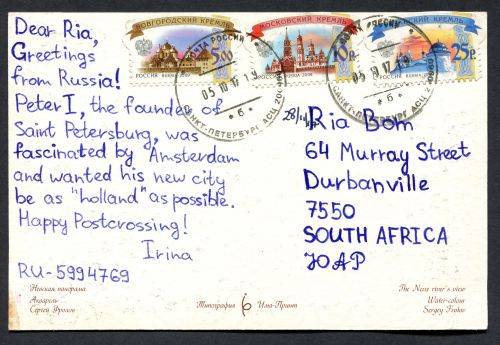 Dear Ria,
Greetings
from Russia!
Peter I, the founder of
Saint Petersburg, was
fascinated by Amsterdam
and wanted his new city
be as "holland" as possible.
Happy Postcrossing!
Irina
RU-5994769
Невская панорама
Акварель
Сергей Фролов
Типография
Има-Принт
НОВГОРОДСКИЙ КРЕМЛЬ
500
РОССИЯ
МОСКОВСКИЙ КРЕМЛЬ
10р
РОССИЯ
КРЕМЛЬ
25р
РОССИЯ
ПОЧТА РОССИИ
05 10 17 19
САНКТ-ПЕТЕРБУРГ АСЦ
* 6 *
РОССИИ
05 10 17 19
САНКТ-ПЕТЕРБУРГ АСЦ
* 6 *
Ria Bom
64 Murray Street
Durbanville
7550
SOUTH AFRICA
ЮАР
The Neva river's view
Water-colour
Sergey Frolov